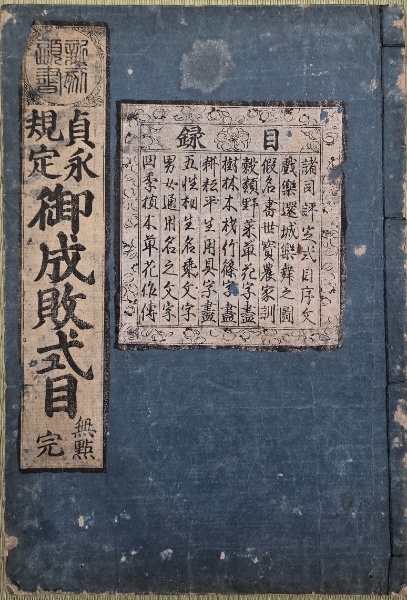 目録
諸司評定式目序文
戯樂還城樂舞之圖
假名書世寳農家訓
穀類野菜草花字盡
樹林木材竹篠字盡
耕耘平生用具字盡
五性相生名乘文字
男女通用名之文字
四季植木草花作傳
新刻
頭書
貞永
規定
御成敗式目
無點
完